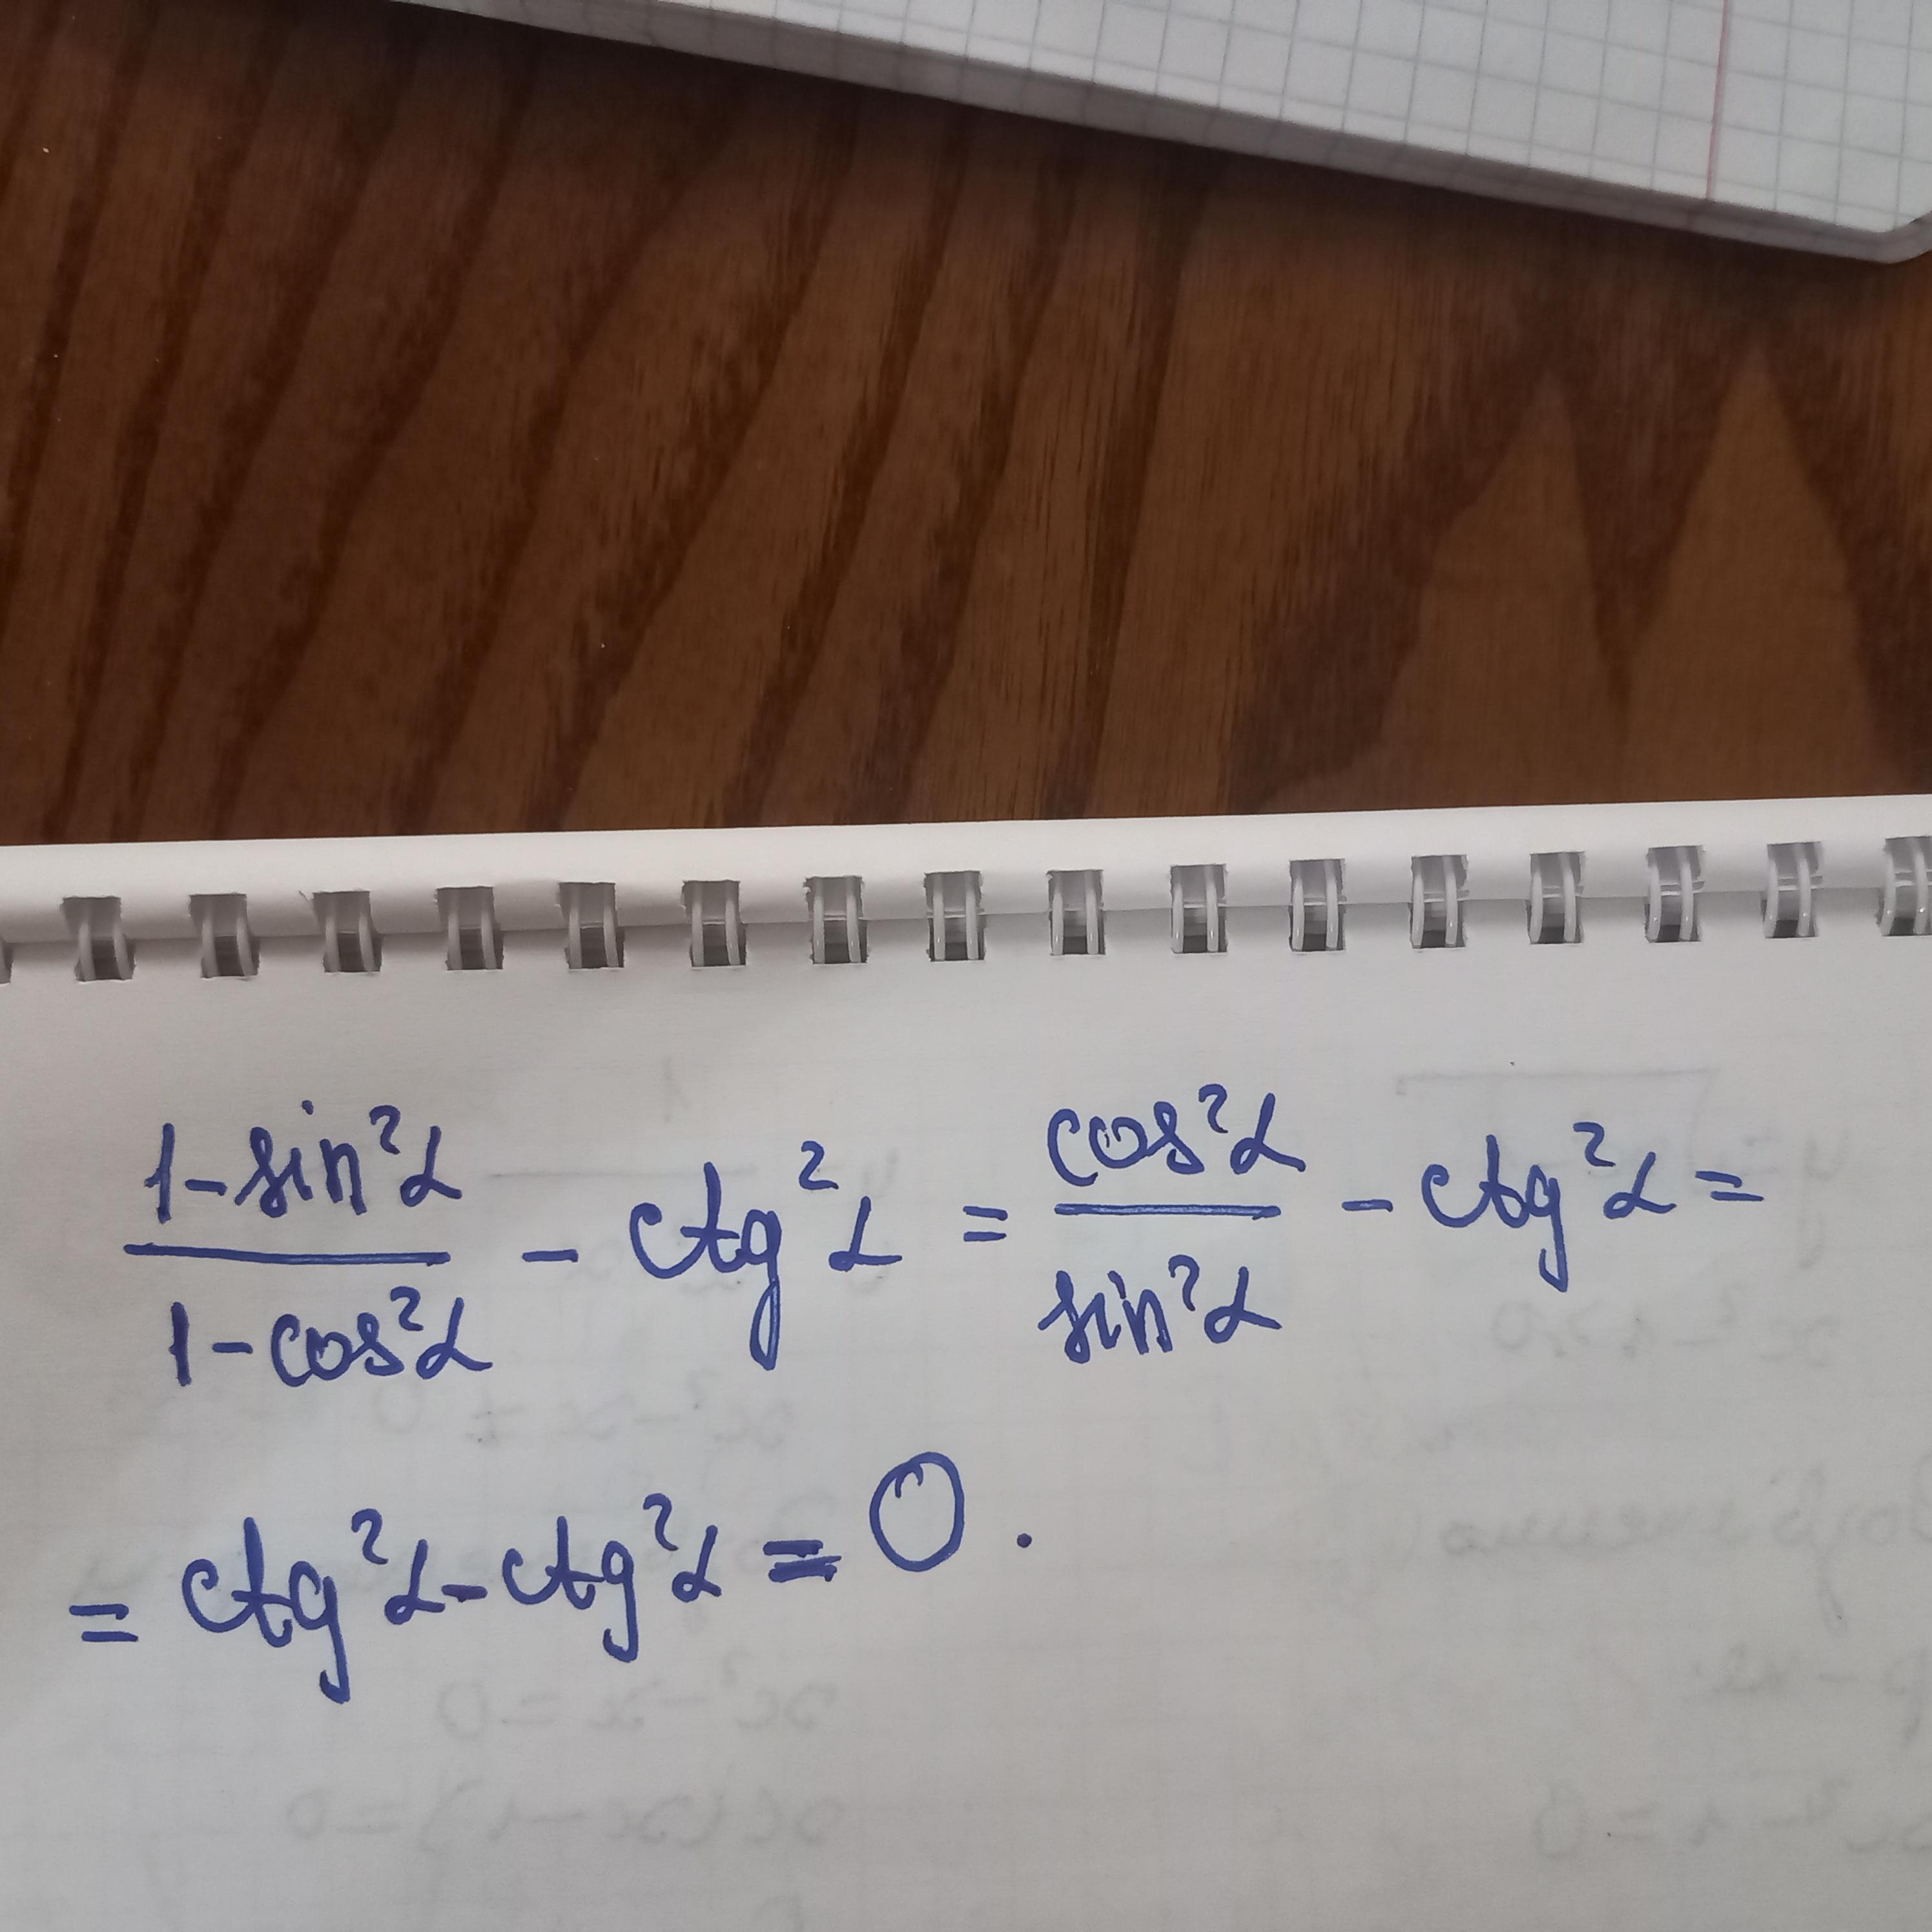 1-sin²α / 1-cos²α - ctg²α = cos²α / sin²α - ctg²α =
= ctg²α - ctg²α = 0.